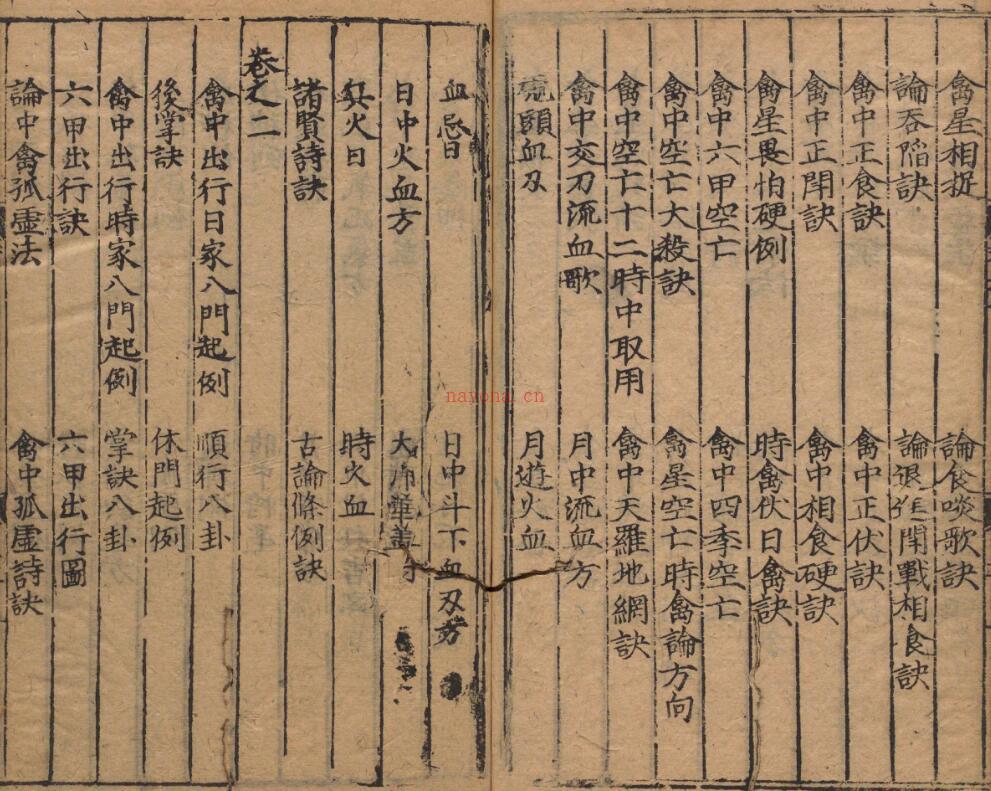 禽星相捉 論食啖歌訣
論吞陷訣 論退進鬪戰相食訣
禽中正食訣 禽中正伏訣
禽中正鬪訣 禽中相食硬訣
禽星畏怕硬例 時禽伏日禽訣
禽中六甲空亡 禽中四季空亡
禽中空亡大殺訣 禽星空亡時禽論方向
禽中空亡十二時中取用 禽中天羅地網訣
禽中交刀流血歌 月中流血方
頭血刃 月遊火血
血忌 日中斗下血刃方
日中火血方 大
火日 時火血
諸賢詩訣 古論條例訣
卷之二
禽中出行日家八門起例 順行八卦
後掌訣 休門起例
禽中出行時家八門起例 掌訣八卦
六甲出行訣 六甲出行圖
論中禽孤虛法 禽中孤虛詩訣
nayona.cn